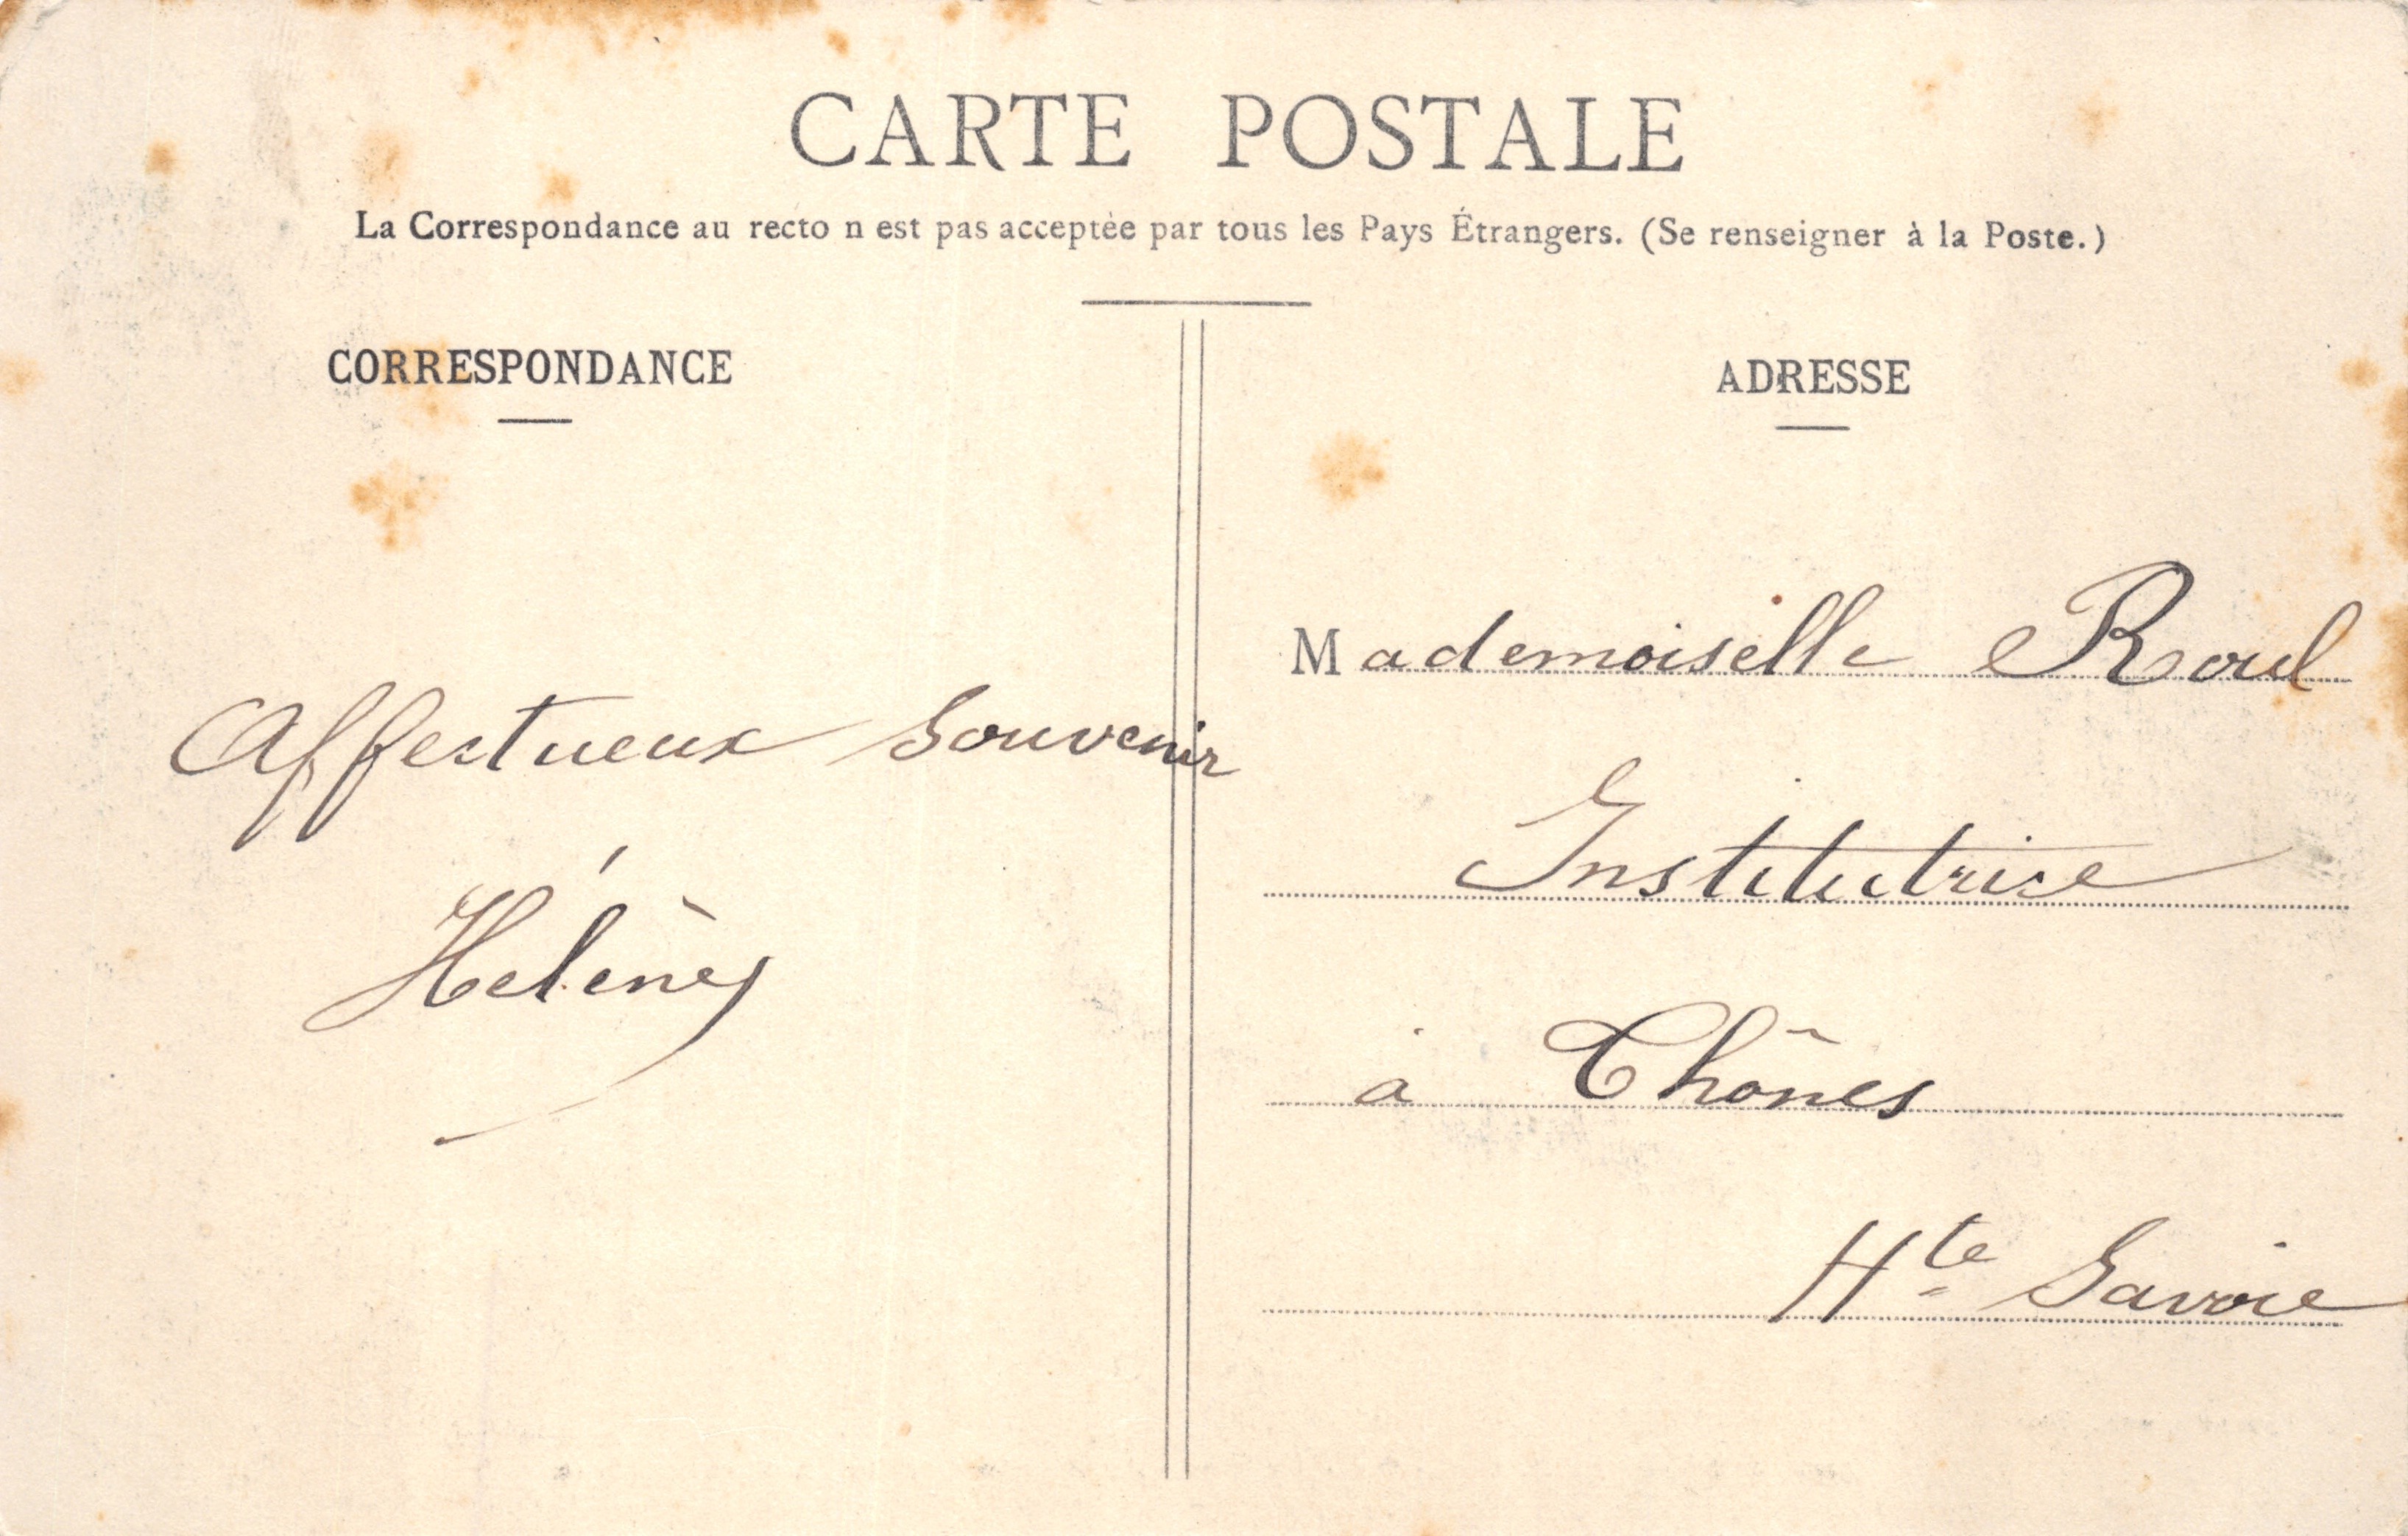 CARTE POSTALE
La Correspondance au recto n est pas acceptée par tous les Pays Étrangers. (Se renseigner à la Poste.)
CORRESPONDANCE
Affectueux Souvenir
Hélène
ADRESSE
Mademoiselle Roul
Institutrice
à Thônes
Hte Savoie